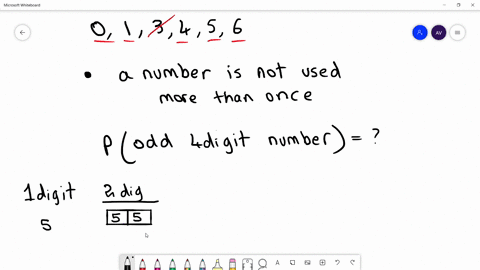 Microsoft Whiteboard
0, 1, 3, 4, 5, 6
AV
• a number is not used
more than once
P(odd 4digit number) = ?
1digit 2dig
5 5 5